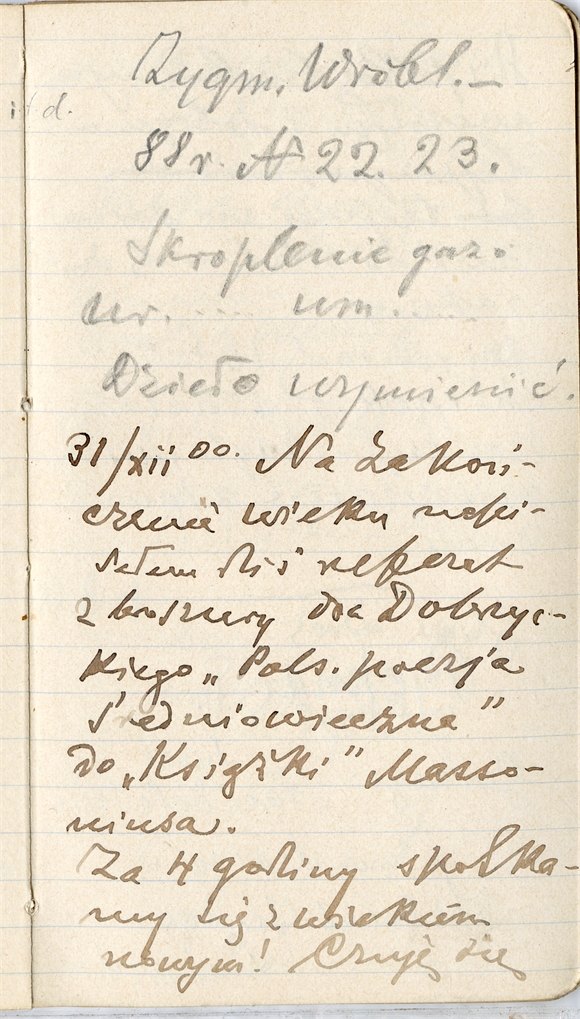 i t d.
Zygm. Wróbl. —
88 r. № 22. 23.
Skroplenie gaz.
nr. .... um. ....
Dzieło wymienić.
31/xii 00. Na zakoń-
czenie wieku napi-
sałem dziś referat
z broszury dra Dobrzyc-
kiego „Pols. poezja
średniowieczna”
do „Książki” Masso-
niusa.
Za 4 godziny spotka-
my się z wiekiem
nowym! Czuję się